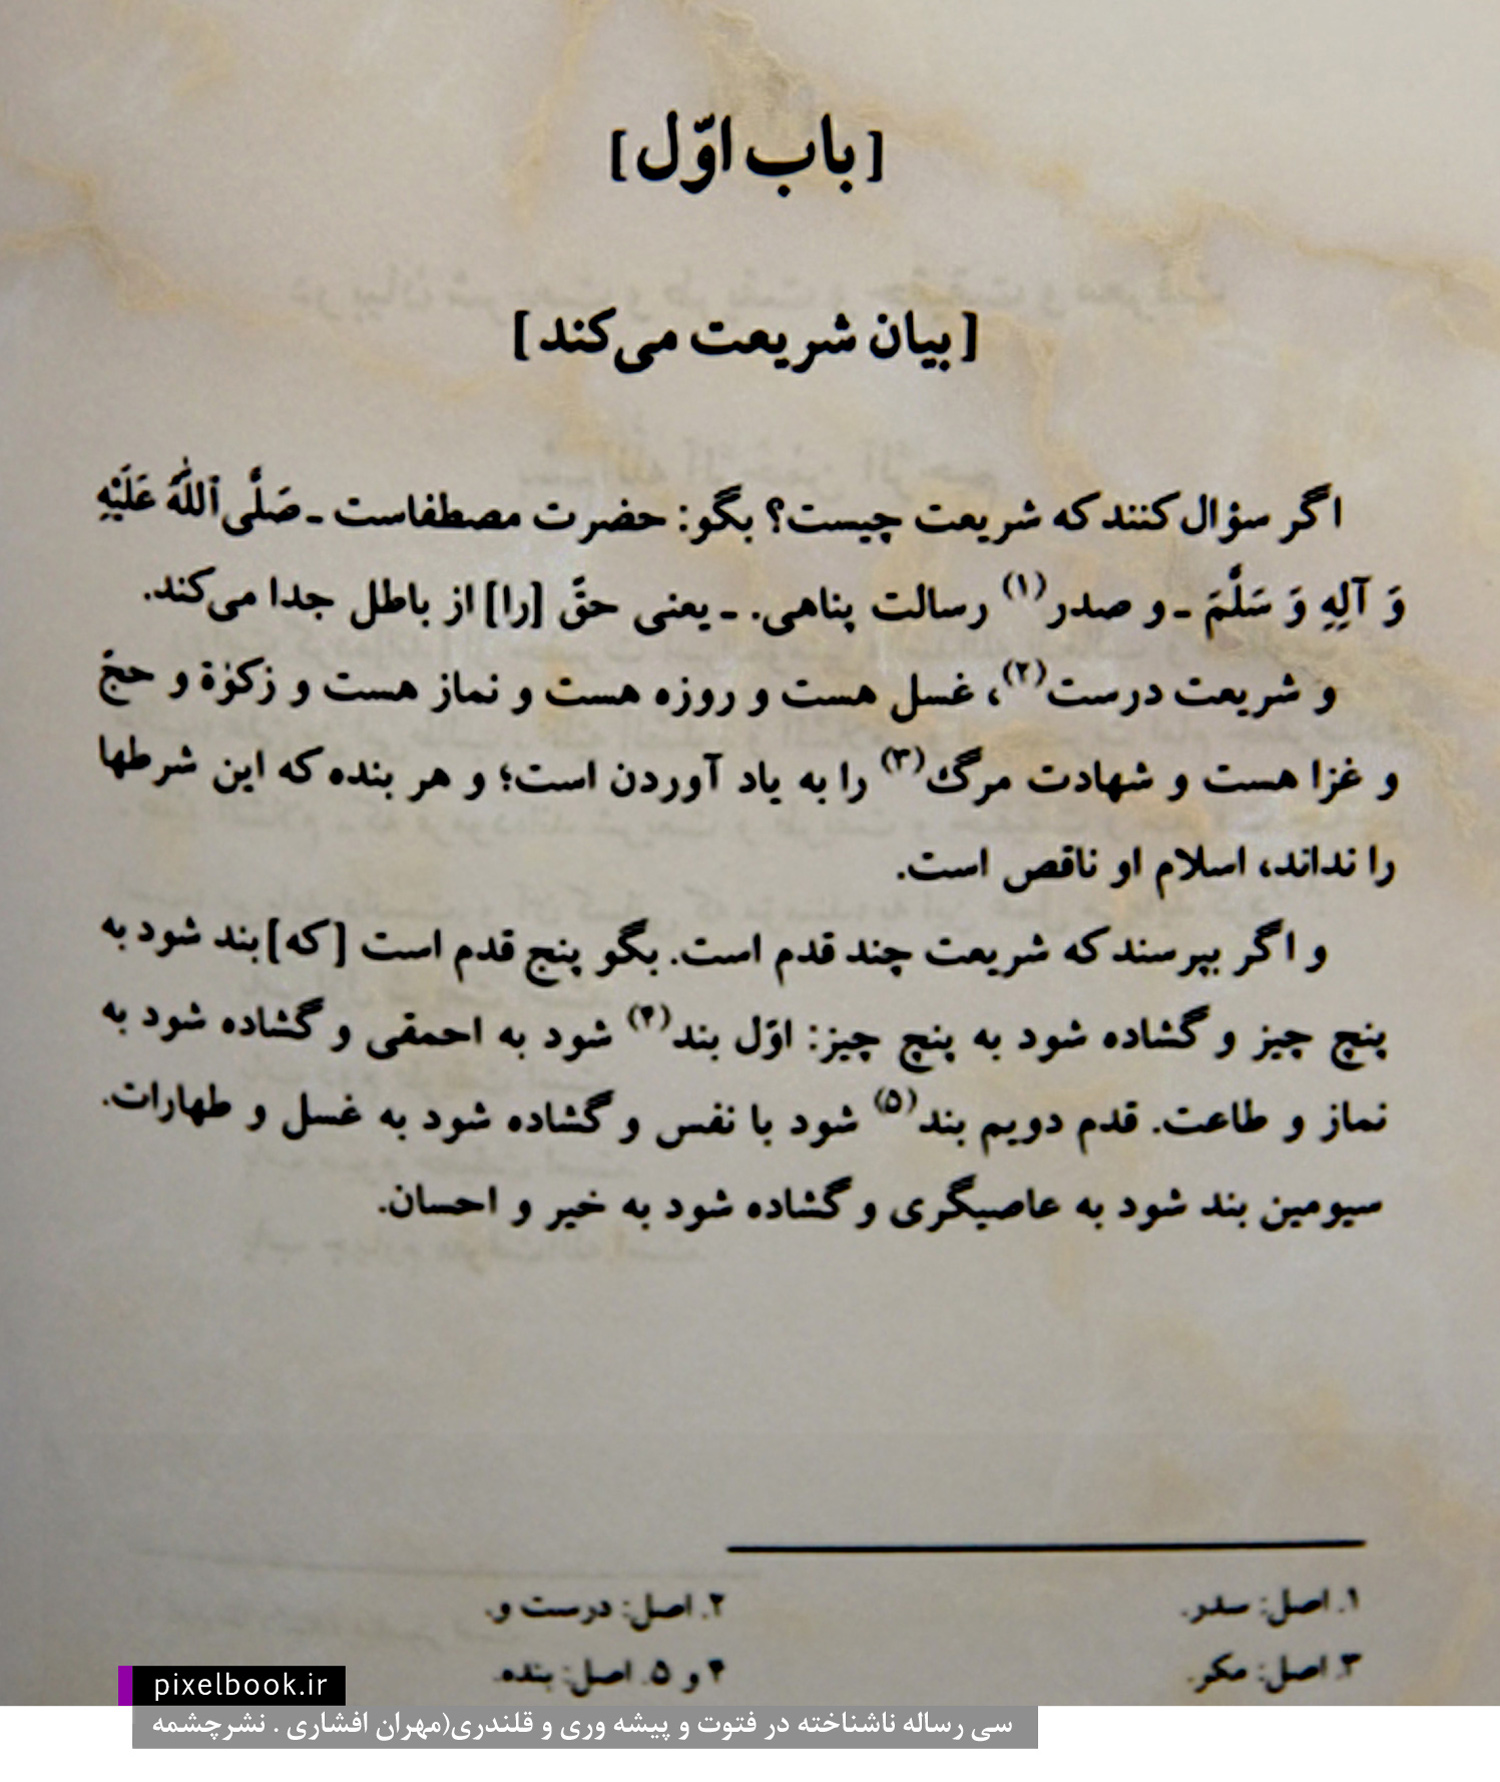 [باب اوّل]
[بیان شریعت می‌کند]
اگر سؤال کنند که شریعت چیست؟ بگو: حضرت مصطفاست ـ صَلَّی ٱللهُ عَلَیْهِ
وَ آلِهِ وَ سَلَّمَ ـ و صدر(۱) رسالت پناهی. ـ یعنی حقّ [را] از باطل جدا می‌کند.
و شریعت درست(۲)، غسل هست و روزه هست و نماز هست و زکوٰة و حجّ
و غزا هست و شهادت مرگ(۳) را به یاد آوردن است؛ و هر بنده که این شرطها
را نداند، اسلام او ناقص است.
و اگر بپرسند که شریعت چند قدم است. بگو پنج قدم است [که] بند شود به
پنج چیز و گشاده شود به پنج چیز: اوّل بند(۴) شود به احمقی و گشاده شود به
نماز و طاعت. قدم دویم بند(۵) شود با نفس و گشاده شود به غسل و طهارات.
سیومین بند شود به عاصیگری و گشاده شود به خیر و احسان.
۱. اصل: سدر. ۲. اصل: درست و.
۳. اصل: مکر. ۴ و ۵. اصل: بنده.
pixelbook.ir
سی رساله ناشناخته در فتوت و پیشه وری و قلندری(مهران افشاری . نشرچشمه